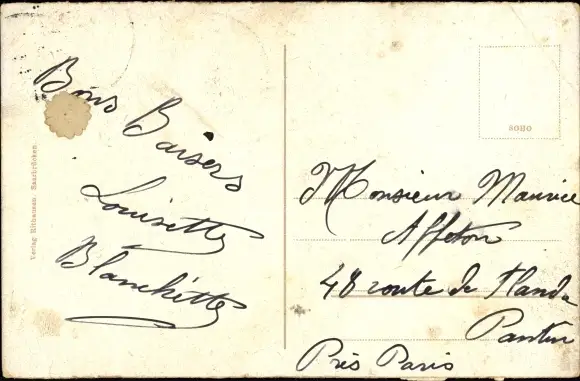 Bons Baisers
Louisette
Blanchette
Verlag Rithausen. Saarbrücken.
8080
Monsieur Maurice
Affeton
48 route de Flandre
Pantin
Près Paris